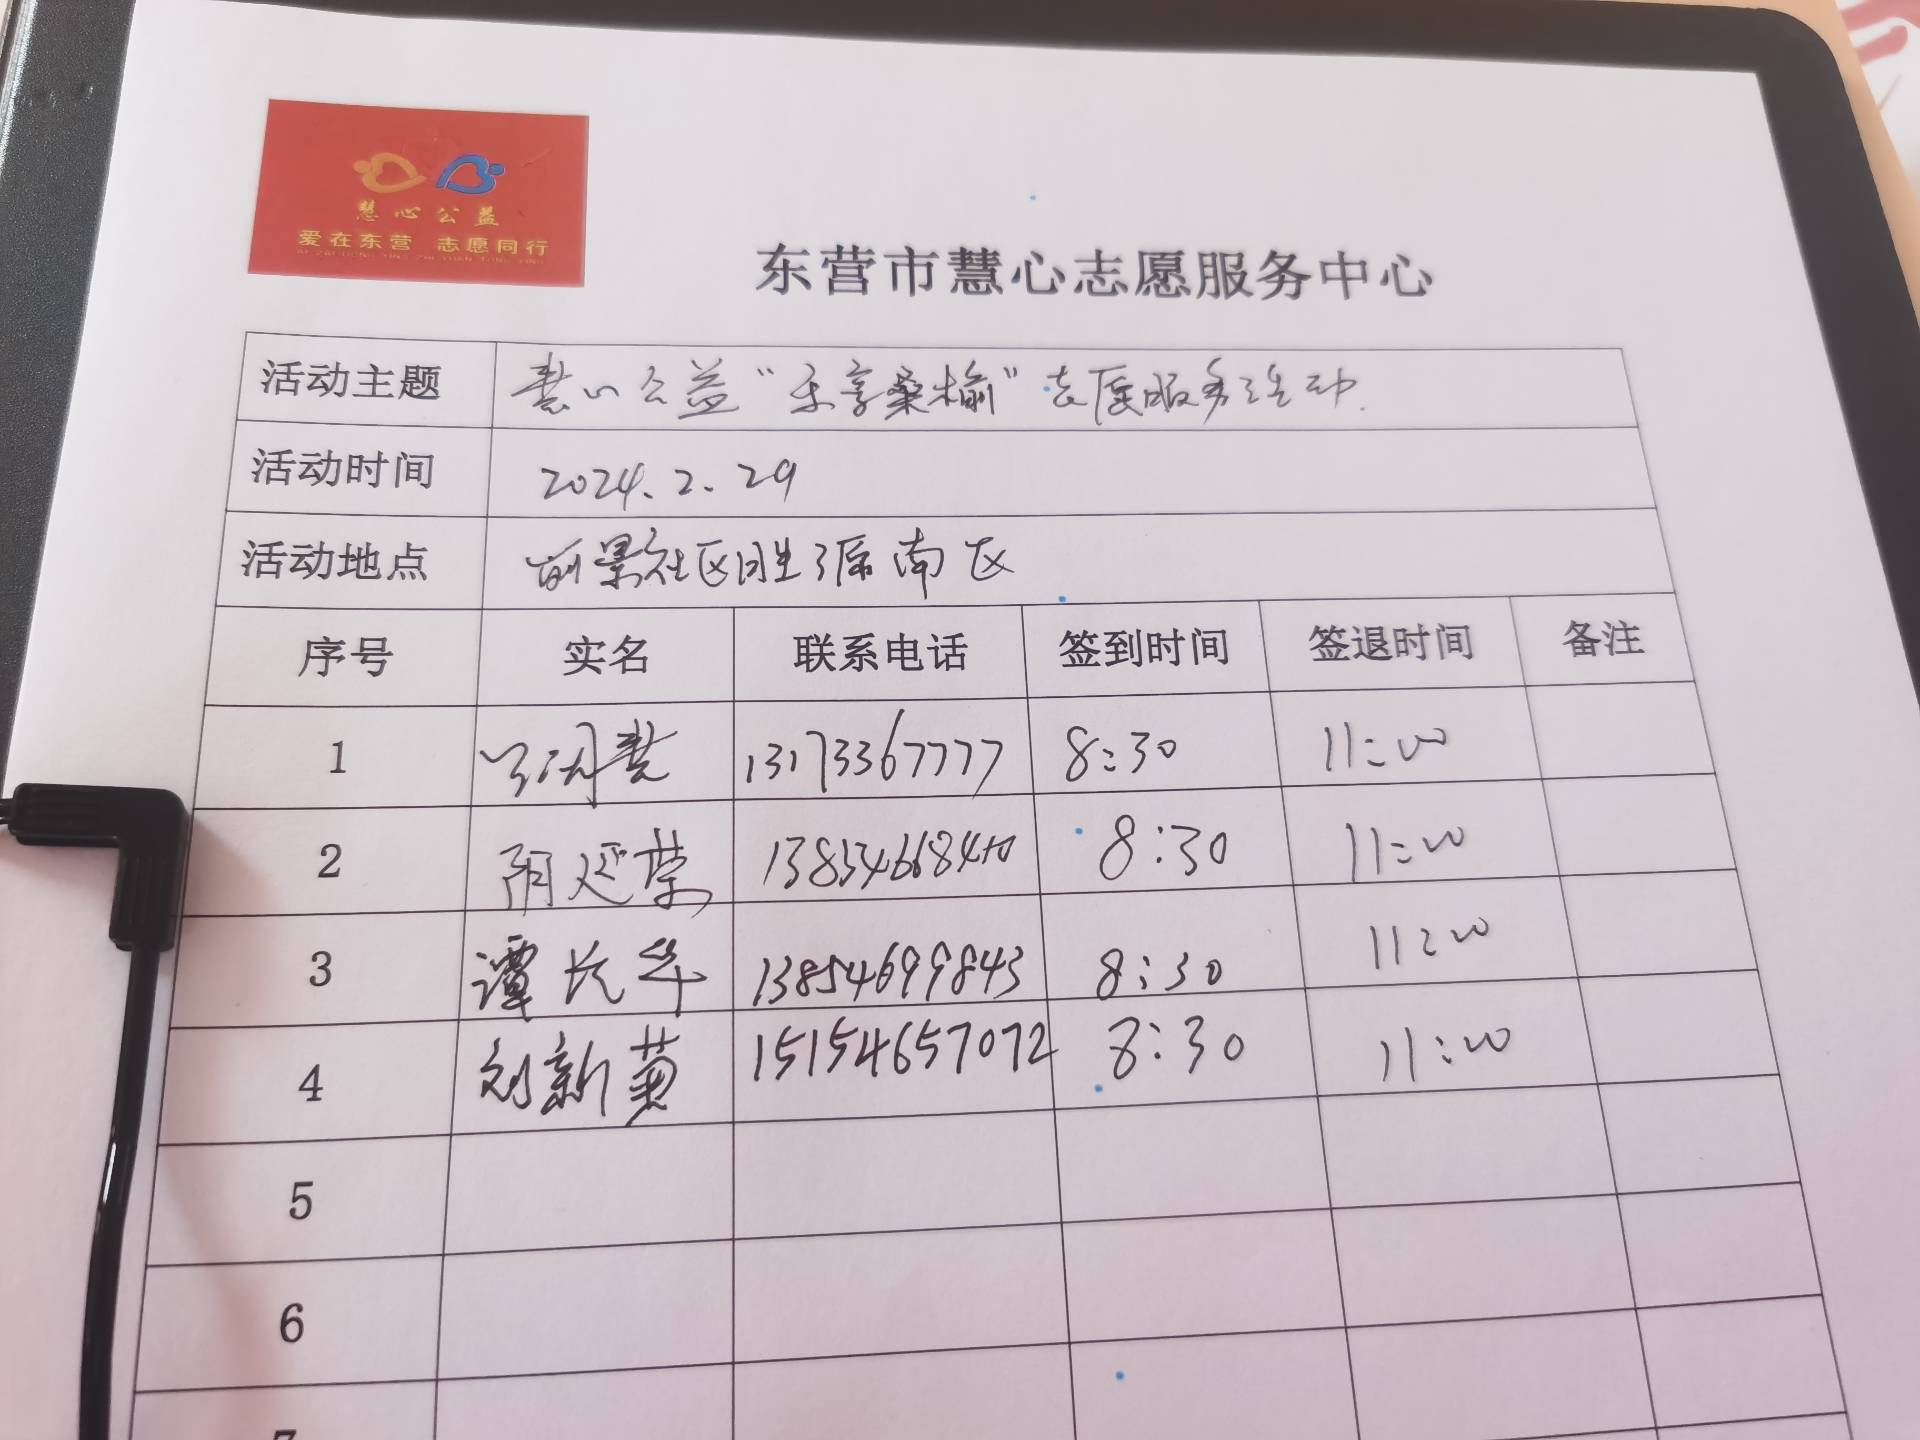 慧心公益
爱在东营 志愿同行
AI ZAI DONG YING ZHI YUAN TONG XING
东营市慧心志愿服务中心
活动主题 慧心公益“乐享桑榆”志愿服务活动.
活动时间 2024.2.29
活动地点 前景社区胜源南区
序号 实名 联系电话 签到时间 签退时间 备注
1 慧 13173367777 8:30 11:00
2 阴延荣 8:30 11:00
3 谭长华 13854699843 8:30 11:00
4 刘新菊 15154657072 8:30 11:00
5
6
7